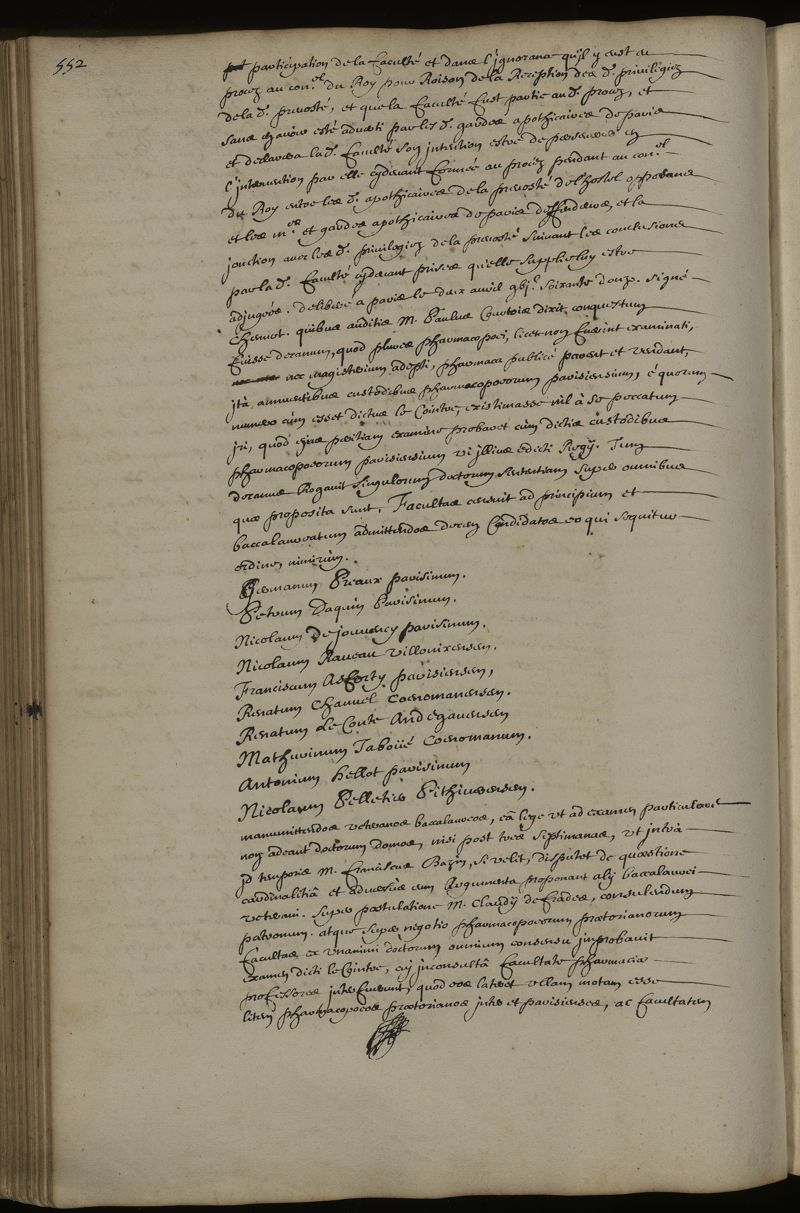 552
participation de la Faculté et dans l'ignorance qu'il y eust eu
procez au con.el du Roy pour Raison de la Reception des d. priuilegiez
de la d. preuosté, et que la Faculté Fust partie au d. procez, et
sans en auoir esté aduerti par les d. gardes apothicaires de paris
et declarera la d. Faculté son intention estre de perseuerer en
l'interuention par elle cy deuant Formée au procez pendant au con.el
du Roy entre les d. apothicaires de la preuosté de l'hostel opposans
et les m.es et gardes apothicaires de paris deffendeurs, et la
jonction auec les d. priuilegiez de la preuosté suiuant les conclusions
par la d. Faculté cy deuant prises qu'elle supplie luy estre
adjugées. deliberé a paris le dix auril gbj.c soixante douze. signé
quibus auditis M. Paulus Courtois dixit conquestum
Fuisse decanum, quod plures pharmacopoei, licet non Fuerint examinati,
nec magisterium adepti, pharmaca publicè parent et vendant,
jtà annuentibus custodibus pharmacopoeorum parisiensium, è quorum
numero cùm esset dictus le Cointre, existimasse nil à se peccatum
iri, quod ejus peritiam examine probaret cum dictis custodibus
pharmacopoeorum parisiensium vi jllius edicti Regij. Tum
decanus Rogauit singulorum doctorum sententiam super omnibus
quæ proposita sunt. Facultas censuit ad principium et
baccalaureatum admittendos decem Candidatos eo qui sequitur
ordine, nimirùm.
Germanum Preaux parisinum.
Petrum Daquin Parisinum.
Nicolaum De jouuency parisinum.
Nicolaum Raueau
Franciscum Afforty parisiensem,
Renatum Chauuel Coenomanensem.
Renatum Le Conte Andegauensem
Mathurinum Taboüé Coenomanum.
Antonium Hellot parisinum
Nicolaum Pelletier Pithiuerensem.
manumittendos veteranos baccalaureos, eâ lege vt ad examen particulare
non adeant doctorum domos, nisi post tres septimanas, vt intrà
jd temporis M. Franciscus Bazin, si velit, disputet de quæstione
cardinalitiâ et aduersùs eum Argumenta proponant alij baccalaurei
veterani. super postulatione M. Claudij de Frades, consulendum
patronum. atque super negotio pharmacopoeorum prætorianorum
Facultas ex vnanimi doctorum omnium consensu jmprobauit
examen dicti le Cointre, cuj inconsultâ Facultate pharmaciæ
professores interfuerunt, quod eos lateret vllam motam esse
litem pharmacopoeos prætorianos inter et parisienses, ac Facultatem